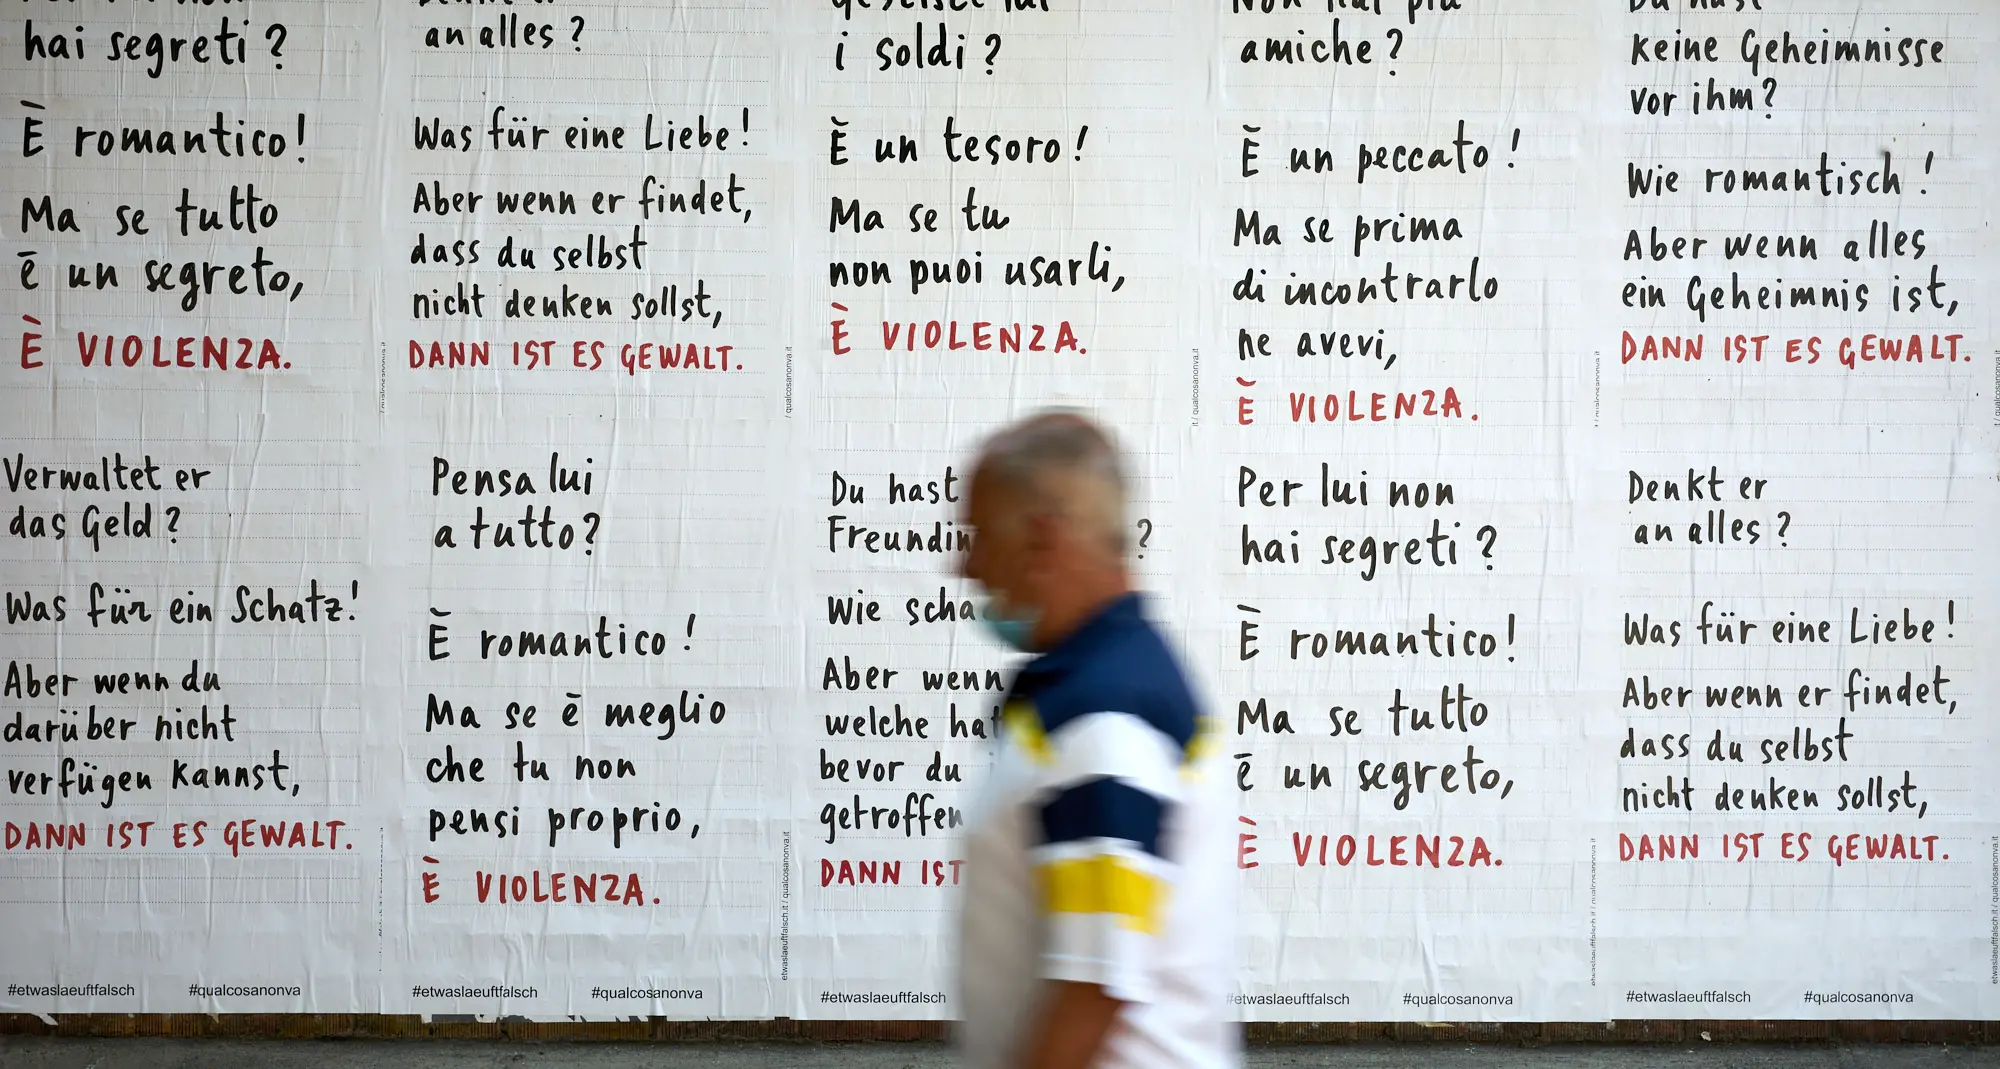 hai segreti?
È romantico!
Ma se tutto
è un segreto,
È VIOLENZA.
Verwaltet er
das Geld?
Was für ein Schatz!
Aber wenn du
darüber nicht
verfügen kannst,
DANN IST ES GEWALT.
#etwaslaeuftfalsch #qualcosanonva
an alles?
Was für eine Liebe!
Aber wenn er findet,
dass du selbst
nicht denken sollst,
DANN IST ES GEWALT.
Pensa lui
a tutto?
È romantico!
Ma se è meglio
che tu non
pensi proprio,
È VIOLENZA.
#etwaslaeuftfalsch #qualcosanonva
/ qualcosanonva.it
etwaslaeuftfalsch.it / qualcosanonva.it
gestisce lui
i soldi?
È un tesoro!
Ma se tu
non puoi usarli,
È VIOLENZA.
Du hast
Freundin ?
Wie scha
Aber wenn
welche hat
bevor du
getroffen
DANN IST
#etwaslaeuftfalsch
it / qualcosanonva.it
Non hai più
amiche?
È un peccato!
Ma se prima
di incontrarlo
ne avevi,
È VIOLENZA.
Per lui non
hai segreti?
È romantico!
Ma se tutto
è un segreto,
È VIOLENZA.
#etwaslaeuftfalsch #qualcosanonva
Du hast
keine Geheimnisse
vor ihm?
Wie romantisch!
Aber wenn alles
ein Geheimnis ist,
DANN IST ES GEWALT.
Denkt er
an alles?
Was für eine Liebe!
Aber wenn er findet,
dass du selbst
nicht denken sollst,
DANN IST ES GEWALT.
#etwaslaeuftfalsch #qualcosanonva
etwaslaeuftfalsch.it / qualcosanonva.it